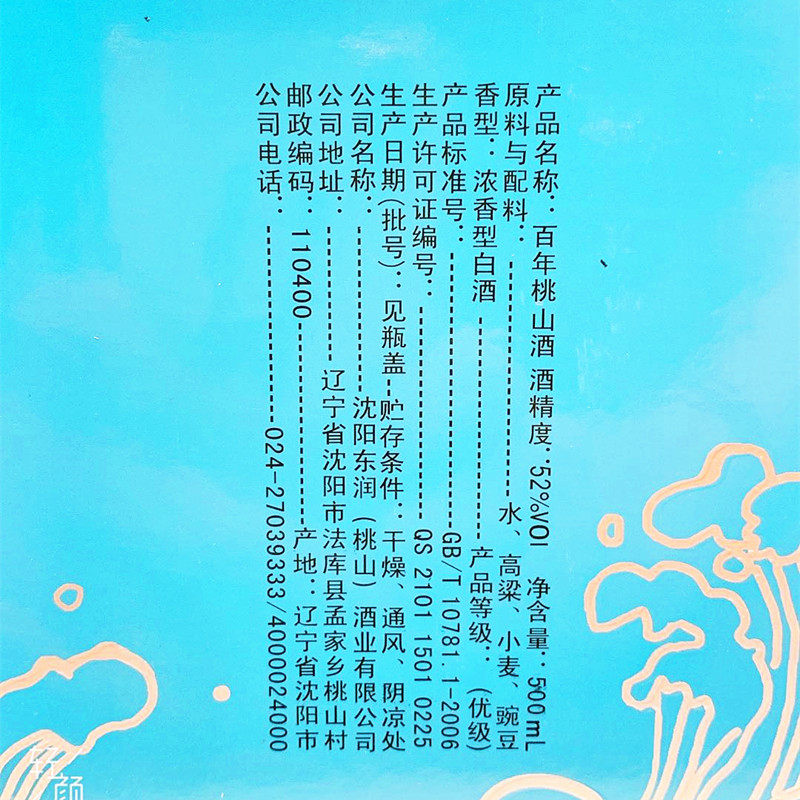 产品名称：百年桃山酒 酒精度：52%VOl 净含量：500mL
原料与配料：水、高粱、小麦、豌豆
香型：浓香型白酒 产品等级：（优级）
产品标准号：GB/T 10781.1-2006
生产许可证编号：QS 2101 1501 0225
生产日期(批号)：见瓶盖 贮存条件：干燥、通风、阴凉处
公司名称：沈阳东润（桃山）酒业有限公司
公司地址：辽宁省沈阳市法库县孟家乡桃山村
邮政编码：110400 产地：辽宁省沈阳市
公司电话：024-27039333/4000024000
轻颜